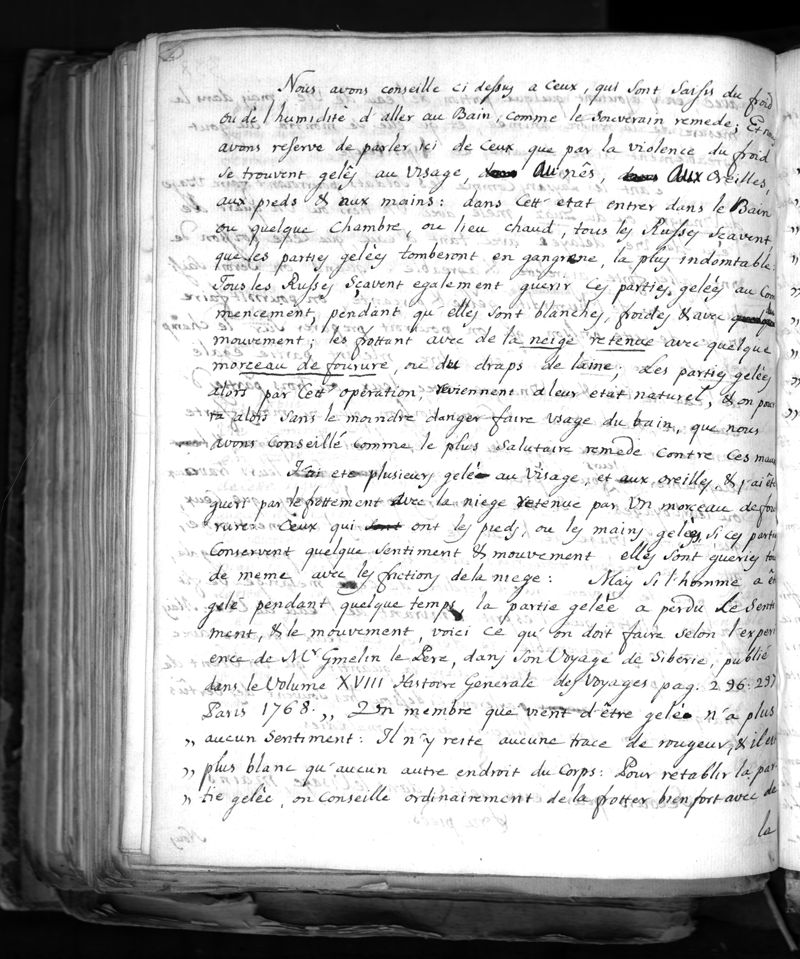 Nous avons conseille ci dessus a Ceux, qui sont saisis du froid
ou de l'humidité d'aller au Bain, comme le souverain remede; Et nous
avons reserve de parler ici de Ceux que par la violence du froid
se trouvent gelês au visage, au nês, aux oreilles,
aux pieds & aux mains: dans Cett etat entrer dans le Bain
ou quelque Chambre, ou lieu chaud, tous les Russes sçavent
que les parties gelées tomberont en gangrene, la plus indomtable:
Tous les Russes sçavent egalement guerir Ces parties gelées au Com
mencement, pendant qu'elles sont blanches, froides & avec
mouvement; les frottant avec de la neige retenue avec quelque
morceau de fourure, ou du draps de laine; Les parties gelées
alors par Cett' opération, reviennent a leur etat naturel, & on pour
ra alors sans le moindre danger faire usage du bain, que nous
avons Conseillé comme le plus salutaire remede contre Ces maux
J'ai eté plusieurs gelé au visage, et aux oreilles, & j'ai été
gueri par le frottement avec la niege retenue par un morceau de fou
rure. Ceux qui ont les pieds, ou les mains gelées, si ces parties
Conservent quelque sentiment & mouvement elles sont gueries tou
de meme avec les frictions de la niege: Mais si l'homme a êt
gelé pendant quelque temps, la partie gelée a perdu le senti
ment, & le mouvement, voici ce qu'on doit faire selon l'experi
ence de Mr Gmelin le Pere, dans son Voyage de Siberie, publié
dans le Volume XVIII Histoire Generale des Voyages pag. 296. 297
Paris 1768. ,, Un membre que vient d'être gelé n'a plus
,, aucun sentiment: Il n'y reste aucune trace de rougeur, & il est
,, plus blanc qu'aucun autre endroit du Corps: Pour retablir la par
,, tie gelée, on Conseille ordinairement de la frotter bien fort avec de
la